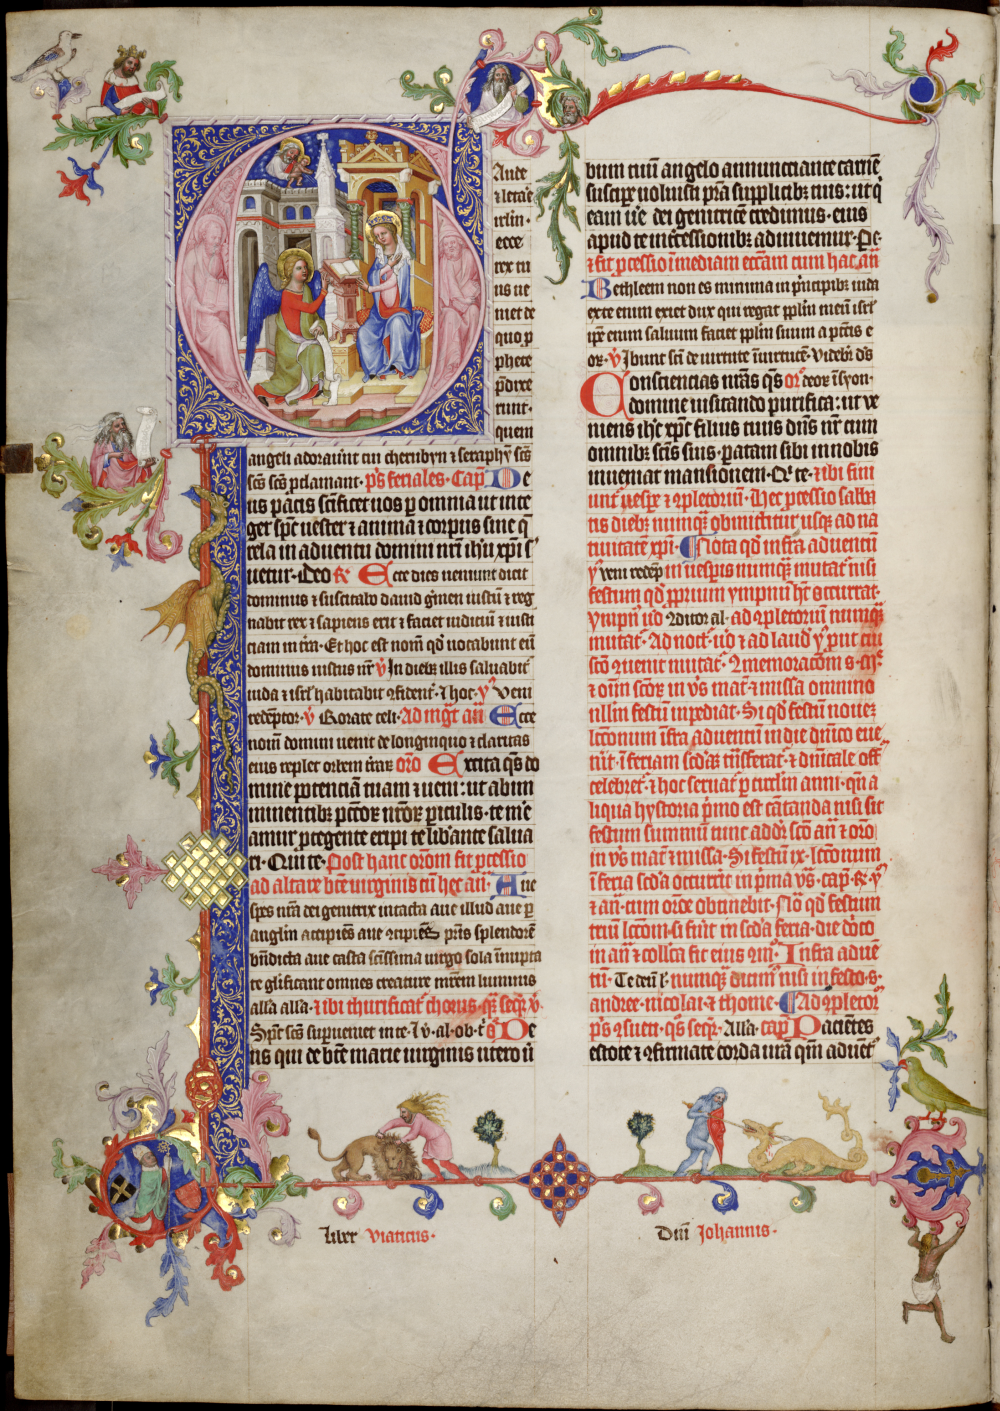 Aude
& letare
irl'm ·
ecce
rex tu
us ue
niet de
quo p
phete
pdixe
runt ·
quem
angeli adorauūt cui cherubyn & seraphȳ sc̄s
sc̄s sc̄s p̄clamant · p̄s feriales · Cap̄ De
us pacis sc̄ificet uos p omnia ut inte
ger sp̄c uester & anima & corpus sine q̄
rela in aduentu domini nr̄i ih'u xp̄i s'
uetur · deo R̄ Ecce dies ueniunt dicit
dominus & suscitabo dauid g'men iustū & reg
nabit rex & sapiens erit & faciet iudiciū & iusti
ciam in tr̄a · Et hoc est nom̄ qd̄ uocabunt eū
dominus iustus nr̄ ℣ In dieb; illis saluabit'
iuda & isrl' habitabit 9fident' · & hoc · ℣ Veni
redēptor · ℣ Rorate celi · Ad mgt̄ añ Ecce
nom̄ domini uenit de longinquo & claritas
eius replet orbem t'rar; or̄o Excita q̄s do
mine potenciam tuam & ueni : ut ab im
minentib; pcc̄or; nr̄or; piculis · te m'e
amur p̄tegente eripi te lib'ante salua
ri · Qui te · Post hanc or̄om fit p̄cessio
ad altare bt̄e uirginis cū hac añ · Aue
spes nr̄a dei genitrix intacta aue illud aue p
anglm̄ accipiēs aue 9cipiēs pr̄is splendorē
bn̄dicta aue casta sc̄issima uirgo sola īnupta
te gl'ificant omnes creature mr̄em luminis
all'a all'a · & ibi thurificat' chorus · q̄r seq̄r ℣ ·
Sp̄c sc̄s supueniet in te · Deus
tis qui de bt̄e marie uirginis utero ū
bum tuū angelo annunctiante carnē
suscipe uoluisti pr̄a supplicib; tuis : ut q̄
eam u'e dei genitricē credimus · eius
apud te int'cessionib; adiuuemur · Pe ·
& fit p̄cessio ī mediam ecc̄am cum hac añ
Bethleem non es minima in p̄ncipib; iuda
ex te enim exiet dux qui regat pplm̄ meū isrl'
ip̄e enim saluum faciet pplm̄ suum a pcc̄is e
or; ℣ Ibunt sc̄i de uirtute ī uirtutē · Videbr̄ ds̄
Consciencias nr̄as q̄s or̄ deor; ī syon ·
domine uisitando purifica : ut ve
niens ih'c xp̄c filius tuus dn̄s nr̄ cum
omnib; sc̄is suis · paratam sibi in nobis
inueniat mansionem · Q' te · & ibi fini
unt' uesp̄e & 9pletoriū · Hec p̄cessio sabba
tis dieb; nunq; obmittitur usq; ad na
tiuitatē xp̄i · Nota qd̄ infra aduentū
℣ veni redēp in uesp̄is nunq; mutat' nisi
festum qd̄ p̄prium ympnū ht̄ occurrat ·
Ympn' u'o 9ditor al · ad 9pletoriū nunq;
mutat' · Ad noct' · u'o & ad laud' ℣ put cui
sc̄o 9uenit mutat' · 9memoracōm s · cr̄ ·
& oīm sc̄or; in v̄s mat̄ & missa omnino
ullm̄ festū inpediat · Si qd̄ festū noue;
lcc̄onum infra aduentū in die dn̄ico eue
nit · ī feriam scd̄am t'nsferat' · & dn̄icale off'
celebret' · & hoc seruat' p circl'm anni · qn̄ a
liqua hystoria p̄mo est cātanda nisi sit
festum summū tunc addr̄ sc̄o añ & or̄o
in v̄s mat̄ & missa · Si festū ix · lcc̄onum
ī feria scd̄a occurrit in p̄ma v̄s · cap̄ · R̄ · ℣
& añ · cum or̄oe obtinebit · No qd̄ festum
triū lcc̄om · si fu'it in scd̄a feria · die dn̄co
in añ & coll'ca fit eius qm̄ · Infra aduē
tū · Te deū l' · nunq; dicim' nisi in festo · s ·
andree · nicolai · & thome · Ad 9pletor'
p̄s 9sueti · q̄s seq̄r · All'a · cap̄ Pacientes
estote & 9firmate corda ur̄a qm̄ aduēt'
Liber viaticus ·
Dn̄i Johannis ·